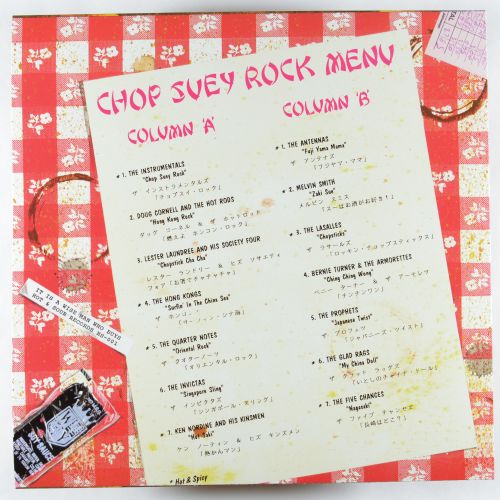 CHOP SUEY ROCK MENU
COLUMN 'A'
* 1. THE INSTRUMENTALS
"Chop Suey Rock"
ザ インストラメンタルズ
「チョップスイ・ロック」
2. DOUG CORNELL AND THE HOT RODS
"Hong Kong Rock"
ダッグ コーネル & ザ ホットロッド
「燃えよ ホンコン・ロック」
3. LESTER LAUNDREE AND HIS SOCIETY FOUR
"Chopstick Cha Cha"
レスター ランドリー & ヒズ ソサエティ
フォア「お箸でチャチャチャ」
* 4. THE HONG KONGS
"Surfin' In The China Sea"
ザ ホンコンズ
* 5. THE QUARTER NOTES
"Oriental Rock"
ザ クオターノーツ
「オリエンタル・ロック」
6. THE INVICTAS
"Singapore Sling"
ザ インビクタズ
「シンガポール・スリング」
* 7. KEN NORDINE AND HIS KINSMEN
"Hot Saki"
ケン ノーティン & ヒズ キンズメン
「熱かんマン」
* Hot & Spicy
COLUMN 'B'
* 1. THE ANTENNAS
"Fuji Yama Mama"
ザ アンテナズ
「フジヤマ・ママ」
* 2. MELVIN SMITH
"Zaki Sue"
メルビン スミス
「スーはお酒がお好き！」
* 3. THE LASALLES
"Chopsticks"
ザ ラサールズ
「ロッキン・チョップスティックス」
4. BERNIE TURNER & THE ARMORETTES
"Ching Chong Wong"
ベニー ターナー & ザ アーモレツ
「チンチンワン」
5. THE PROPHETS
"Japanese Twist"
ザ プロフェツ
「ジャパニーズ・ツイスト」
* 6. THE GLAD RAGS
"My China Doll"
ザ グラッド ラッグズ
「いとしのチャイナ・ドール」
* 7. THE FIVE CHANCES
"Nagasaki"
ザ ファイブ チャンセズ
「長崎はどこ？」
IT IS A WISE MAN WHO BUYS
HOT & SOUR RECORDS